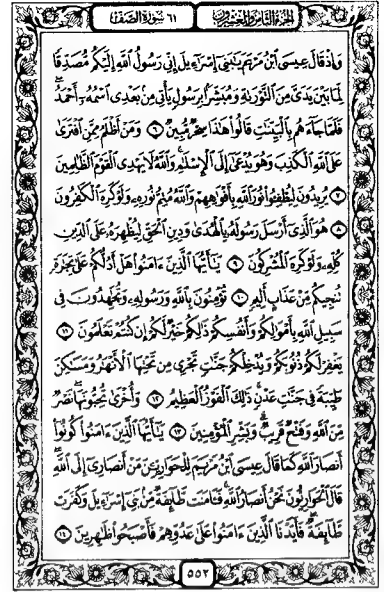 الجزء الثامن والعشرون
٦١ سورة الصف
وَإِذْ قَالَ عِيسَى ابْنُ مَرْيَمَ يَبَنِي إِسْرَاءِيلَ إِنِّي رَسُولُ اللَّهِ إِلَيْكُم مُّصَدِّقًا
لِّمَا بَيْنَ يَدَيَّ مِنَ التَّوْرَىةِ وَمُبَشِّرًا بِرَسُولٍ يَأْتِي مِنْ بَعْدِي اسْمُهُ أَحْمَدُ
فَلَمَّا جَاءَهُم بِالْبَيِّنَتِ قَالُوا هَذَا سِحْرٌ مُّبِينٌ ٦ وَمَنْ أَظْلَمُ مِمَّنِ افْتَرَى
عَلَى اللَّهِ الْكَذِبَ وَهُوَ يُدْعَى إِلَى الْإِسْلَمِ وَاللَّهُ لَا يَهْدِي الْقَوْمَ الظَّلِمِينَ
٧ يُرِيدُونَ لِيُطْفِئُوا نُورَ اللَّهِ بِأَفْوَهِهِمْ وَاللَّهُ مُتِمُّ نُورِهِ وَلَوْ كَرِهَ الْكَفِرُونَ
٨ هُوَ الَّذِي أَرْسَلَ رَسُولَهُ بِالْهُدَى وَدِينِ الْحَقِّ لِيُظْهِرَهُ عَلَى الدِّينِ
كُلِّهِ وَلَوْ كَرِهَ الْمُشْرِكُونَ ٩ يَأَيُّهَا الَّذِينَ ءَامَنُوا هَلْ أَدُلُّكُمْ عَلَى تِجَرَةٍ
تُنجِيكُم مِّنْ عَذَابٍ أَلِيمٍ ١٠ تُؤْمِنُونَ بِاللَّهِ وَرَسُولِهِ وَتُجَهِدُونَ فِي
سَبِيلِ اللَّهِ بِأَمْوَلِكُمْ وَأَنفُسِكُمْ ذَلِكُمْ خَيْرٌ لَّكُمْ إِن كُنتُمْ تَعْلَمُونَ ١١
يَغْفِرْ لَكُمْ ذُنُوبَكُمْ وَيُدْخِلْكُمْ جَنَّتٍ تَجْرِي مِن تَحْتِهَا الْأَنْهَرُ وَمَسَكِنَ
طَيِّبَةً فِي جَنَّتِ عَدْنٍ ذَلِكَ الْفَوْزُ الْعَظِيمُ ١٢ وَأُخْرَى تُحِبُّونَهَا نَصْرٌ
مِّنَ اللَّهِ وَفَتْحٌ قَرِيبٌ وَبَشِّرِ الْمُؤْمِنِينَ ١٣ يَأَيُّهَا الَّذِينَ ءَامَنُوا كُونُوا
أَنصَارَ اللَّهِ كَمَا قَالَ عِيسَى ابْنُ مَرْيَمَ لِلْحَوَارِيِّنَ مَنْ أَنصَارِي إِلَى اللَّهِ
قَالَ الْحَوَارِيُّونَ نَحْنُ أَنصَارُ اللَّهِ فَءَامَنَت طَّائِفَةٌ مِّنْ بَنِي إِسْرَاءِيلَ وَكَفَرَت
طَّائِفَةٌ فَأَيَّدْنَا الَّذِينَ ءَامَنُوا عَلَى عَدُوِّهِمْ فَأَصْبَحُوا ظَهِرِينَ ١٤
٥٥٢